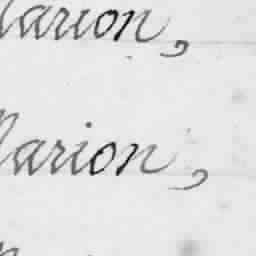 Marion,
Marion,